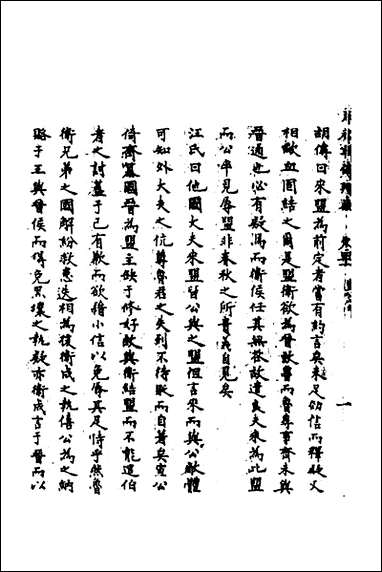 胡傳曰來盟為前定者嘗有約言矣未足効信而釋疑又
相歃血固結之爾是盟衛欲為晉致魯而魯專事齊未與
晉通也必有疑焉而衛侯任其無咎故遣良夫來為此盟
而公卒見辱盟非春秋之所貴義自見矣
汪氏曰他國大夫來盟皆公與之盟但言來而與公敵體
可知外大夫之伉尊魯君之失列不待貶而自著矣宣公
倚齊篡國晉為盟主缺于修好故與衛結盟而不能遑伯
者之討蓋于己有歉而欲藉小信以免辱其足恃乎然魯
衛兄弟之國解紛救患迭相為援衛成之執僖公為之納
賂于王與晉侯而得免黑壤之執疑亦衛成言于晉而以
一